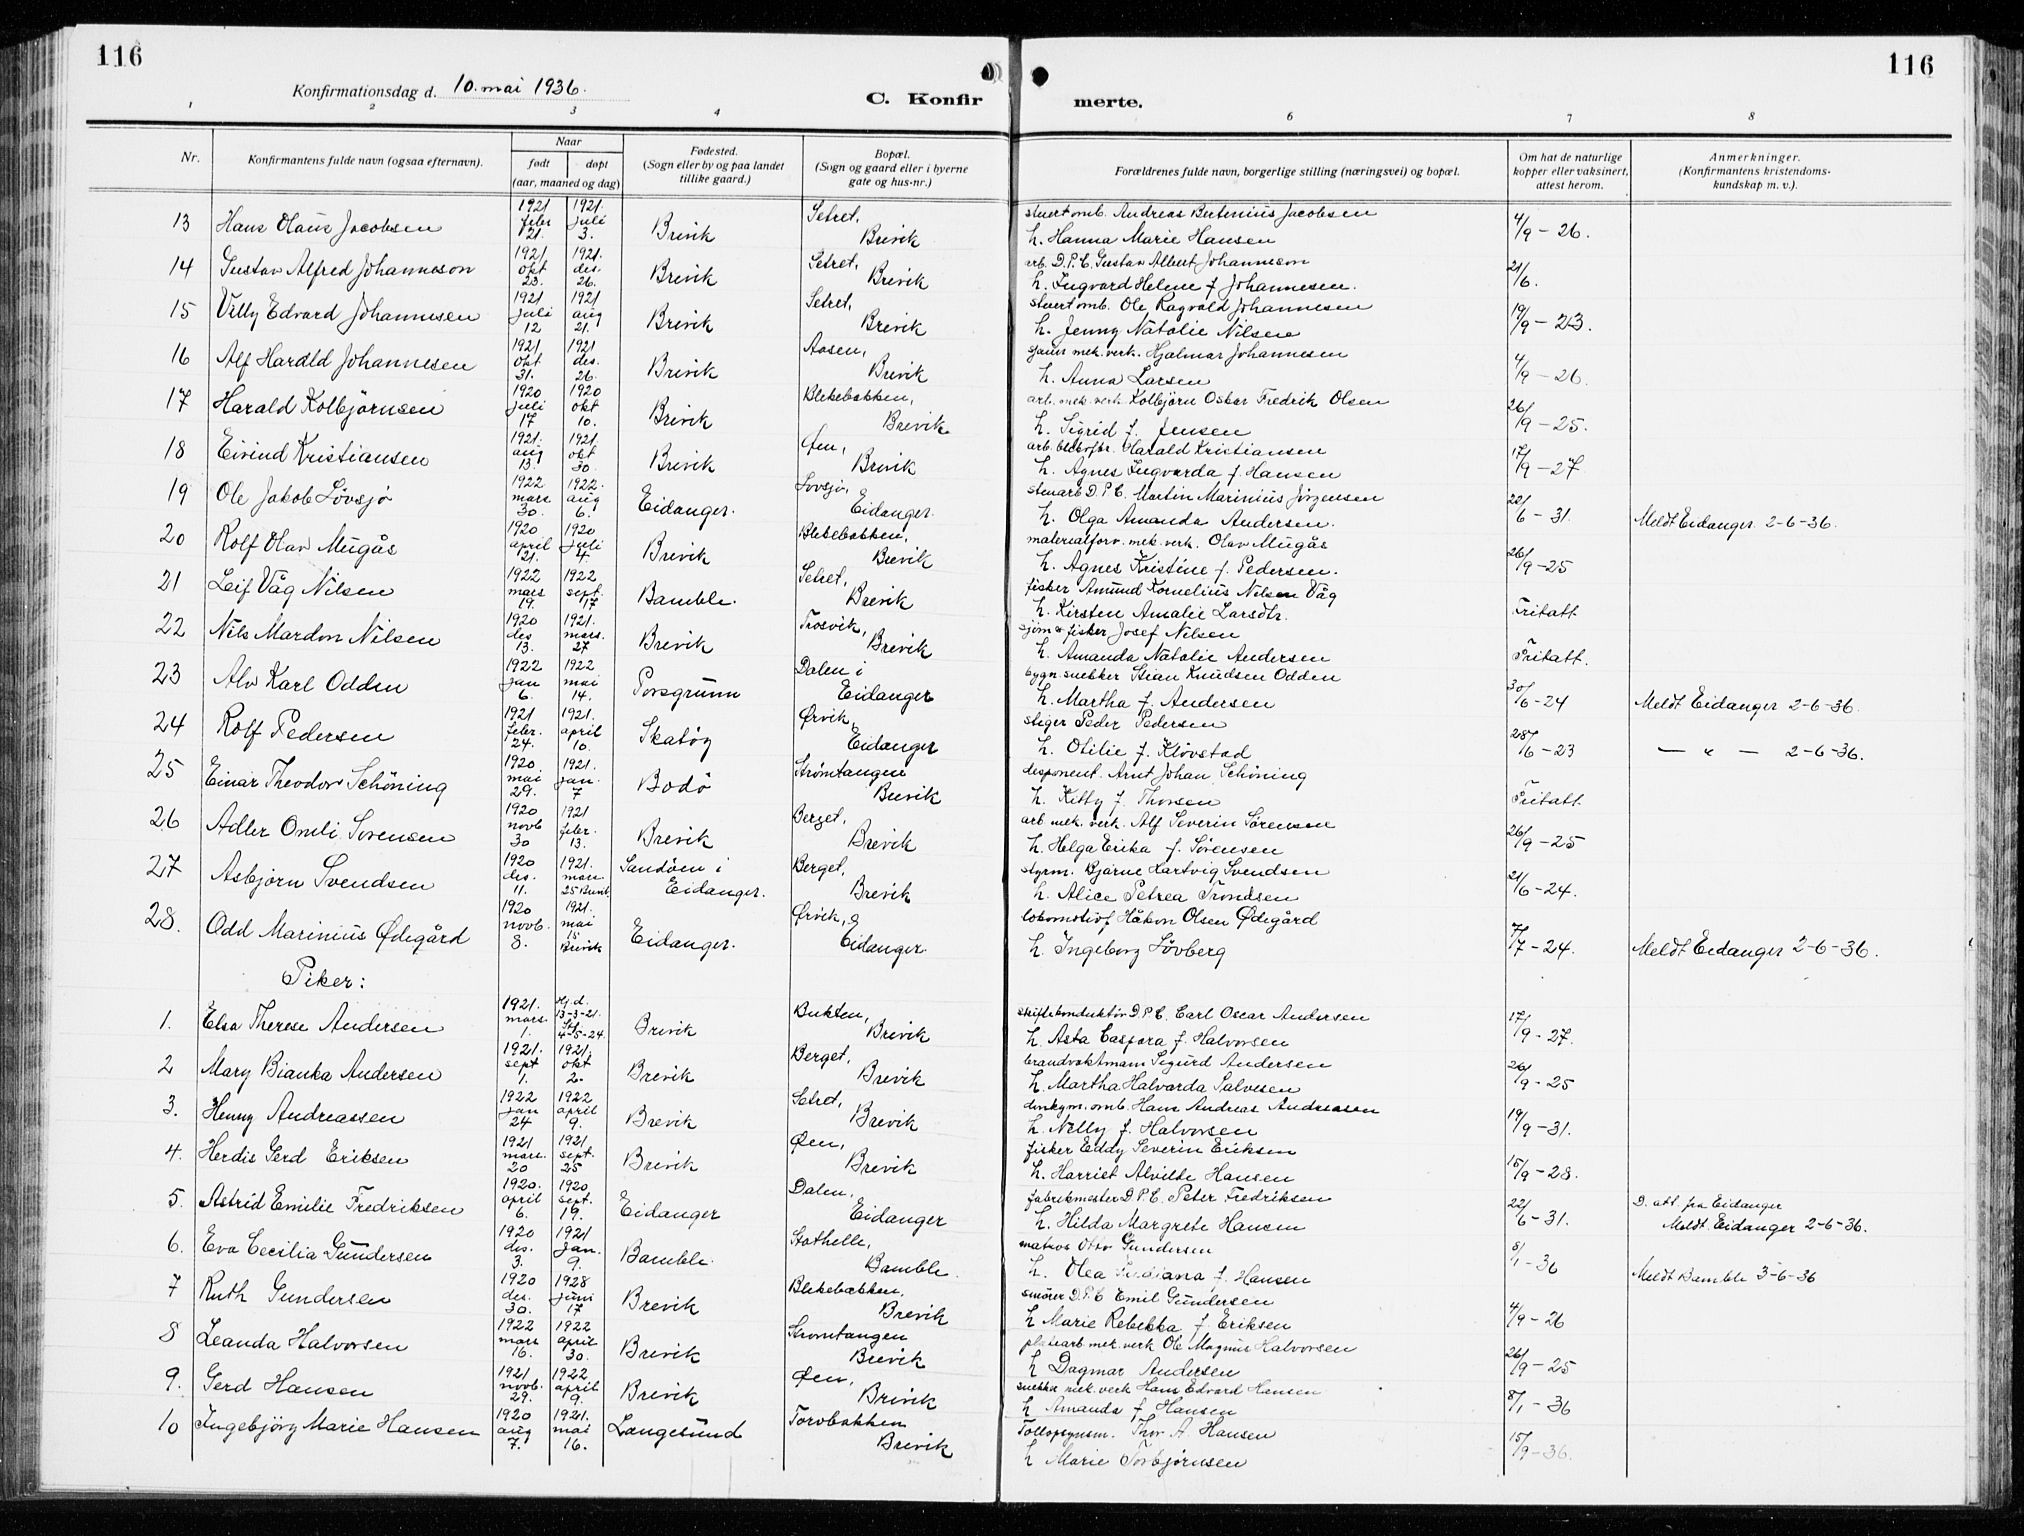 116
116
Konfirmationsdag d. 10. mai 1936.
C. Konfir merte.
1 2 3 4 6 7 8
Nr.
Konfirmantens fulde navn (ogsaa efternavn).
Naar
født døpt
(aar, maaned og dag)
Fødested.
(Sogn eller by og paa landet
tillike gaard.)
Bopæl.
(Sogn og gaard eller i byerne
gate og hus-nr.)
Forældrenes fulde navn, borgerlige stilling (næringsvei) og bopæl.
Om hat de naturlige
kopper eller vaksinert,
attest herom.
Anmerkninger.
(Konfirmantens kristendoms-
kundskap m. v.).
13 Hans Olaus Jacobsen 1921 febr 21. 1921. juli 3. Brevik Setret, Brevik stuertomb. Andreas Bertenius Jacobsen h. Hanna Marie Hansen 4/9-26.
14 Gustav Alfred Johanneson 1921 okt 23. 1921. des. 26. Brevik Setret, Brevik arb. D.P.C. Gustav Albert Johanneson h. Ingvard Helene f. Johannesen. 21/6.
15 Villy Edvard Johannesen 1921 juli 12 1921 aug 21. Brevik Setret, Brevik stuertomb. Ole Ragvald Johannesen h. Jenny Natalie Nilsen 19/9-23.
16 Alf Harald Johannesen 1921 okt 31. 1921 des. 26. Brevik Aasen, Brevik mek. verk. Hjalmar Johannesen h. Anna Larsen 4/9-26.
17 Harald Kolbjørnsen 1920 juli 17 1920 okt 10. Brevik Blekebakken, Brevik arb. mek. verk. Kolbjørn Oskar Fredrik Olsen h. Sigrid f. Jensen 26/9-25.
18 Eivind Kristiansen 1921. aug 13. 1921. okt 30. Brevik Øen, Brevik arb. Harald Kristiansen h. Agnes Ingvarda f. Hansen 17/9-27.
19 Ole Jakob Løvsjø 1922 mars 30. 1922. aug 6. Eidanger. Lovsjø, Eidanger. stenarb D.P.C. Martin Marinius Jørgensen h. Olga Amanda Andersen. 22/6-31. Meldt Eidanger 2-6-36.
20 Rolf Olav Mugås 1920 april 21. 1920 juli 4. Brevik Blekebakken, Brevik materialforv. mek. verk. Olav Mugås h. Agnes Kristine f. Pedersen. 26/9-25
21 Leif Våg Nilsen 1922 mars 19. 1922 sept. 17 Bamble. Setret, Brevik fisker Amund Kornelius Nilsen Våg h. Kirsten Amalie Larsdtr. Fritatt
22 Nils Mardon Nilsen 1920 des 13. 1921. mars. 27 Brevik Trosvik, Brevik sjøm & fisker Josef Nilsen h. Amanda Natalie Andersen Fritatt.
23 Alv Karl Odden 1922 jan 6. 1922 mai 14. Porsgrunn Dalen i Eidanger bygn. snekker Stian Knudsen Odden h. Martha f. Andersen 30/6-24 Meldt Eidanger 2-6-36.
24 Rolf Pedersen 1921 febr. 24. 1921. april 10. Skatøy Ørvik, Eidanger stiger Peder Pedersen h. Otilie f. Kløvstad 28/6-23 — " — 2-6-36.
25 Einar Theodor Schöning 1920. mai 29. 1921. jan. 7 Bodø Strømtangen Brevik disponent. Arnt Johan Schöning h. Kitty f. Thorsen Fritatt
26 Adler Omli Sorensen 1920 novb 30 1921 febr. 13. Brevik Berget, Brevik arb mek. verk. Alf Severin Sørensen h. Helga Erika f. Sörensen 26/9-25
27 Asbjørn Svendsen 1920 des. 11. 1921. mars. 25 Brevik Sandøen i Eidanger. Berget, Brevik styrm. Bjarne Hartvig Svendsen h. Alice Petrea Trondsen 21/6-24.
28. Odd Marinius Ødegård 1920 novb. 8. 1921. mai 15 Brevik Eidanger. Ørvik, Eidanger lokomotivf Håkon Olsen Ødegård h. Ingeborg Lövberg 7/7-24. Meldt Eidanger 2-6-36.
Piker:
1. Elsa Therese Andersen 1921. mars. 1. Hj.d. 13-3-21. Stf. 4-5-24. Brevik Bukten, Brevik skiftekonduktør D.P.C. Carl Oscar Andersen h. Asta Caspara f. Halvorsen 17/9-27.
2 Mary Bianka Andersen 1921. sept 1. 1921. okt 2. Brevik Berget, Brevik brandvaktmann Sigurd Andersen h. Martha Halvarda Salvesen 26/9-25
3. Henny Andreassen 1922 jan 24 1922 april 9. Brevik Setret, Brevik omb. Hans Andreas Andreasen h. Nelly f. Halvorsen 19/9-31.
4. Herdis Gerd Eriksen 1921 mars. 20 1921. sept. 25 Brevik Øen, Brevik fisker Eddy Severin Eriksen h. Harriet Alvilde Hansen 15/9-28.
5. Astrid Emilie Fredriksen 1920. april 6. 1920 sept. 19. Eidanger Dalen, Eidanger fabrikmester D.P.C. Peter Fredriksen h. Hilda Margrete Hansen 22/6-31. D. att. fra Eidanger Meldt. Eidanger 2-6-36.
6. Eva Cecilia Gundersen 1920 des. 3. 1921 jan. 9. Bamble. Stathelle, Bamble matros Otto Gundersen h. Olea f. Hansen 8/1-36 Meldt Bamble 3-6-36
7 Ruth Gundersen 1920 des. 30. 1928 juni 17 Brevik Blekebakken, Brevik smører D.P.C Emil Gundersen h Marie Rebekka f. Eriksen 4/9-26
8 Leanda Halvorsen 1922 mars 16. 1922 april 30. Brevik Strømtangen Brevik platearb mek. verk Ole Magnus Halvorsen h Dagmar Andersen 26/9-25
9. Gerd Hansen 1921 novb. 29. 1922 april 9. Brevik Øen, Brevik snekker mek. verk Hans Edvard Hansen h Amanda f Hansen 8/1-36
10 Ingebjörg Marie Hansen 1920 aug 7. 1921. mai 16. Langesund Torvbakken Brevik Tollopsynsm. Thor A. Hansen h Marie Torbjørnsen 15/9-36.